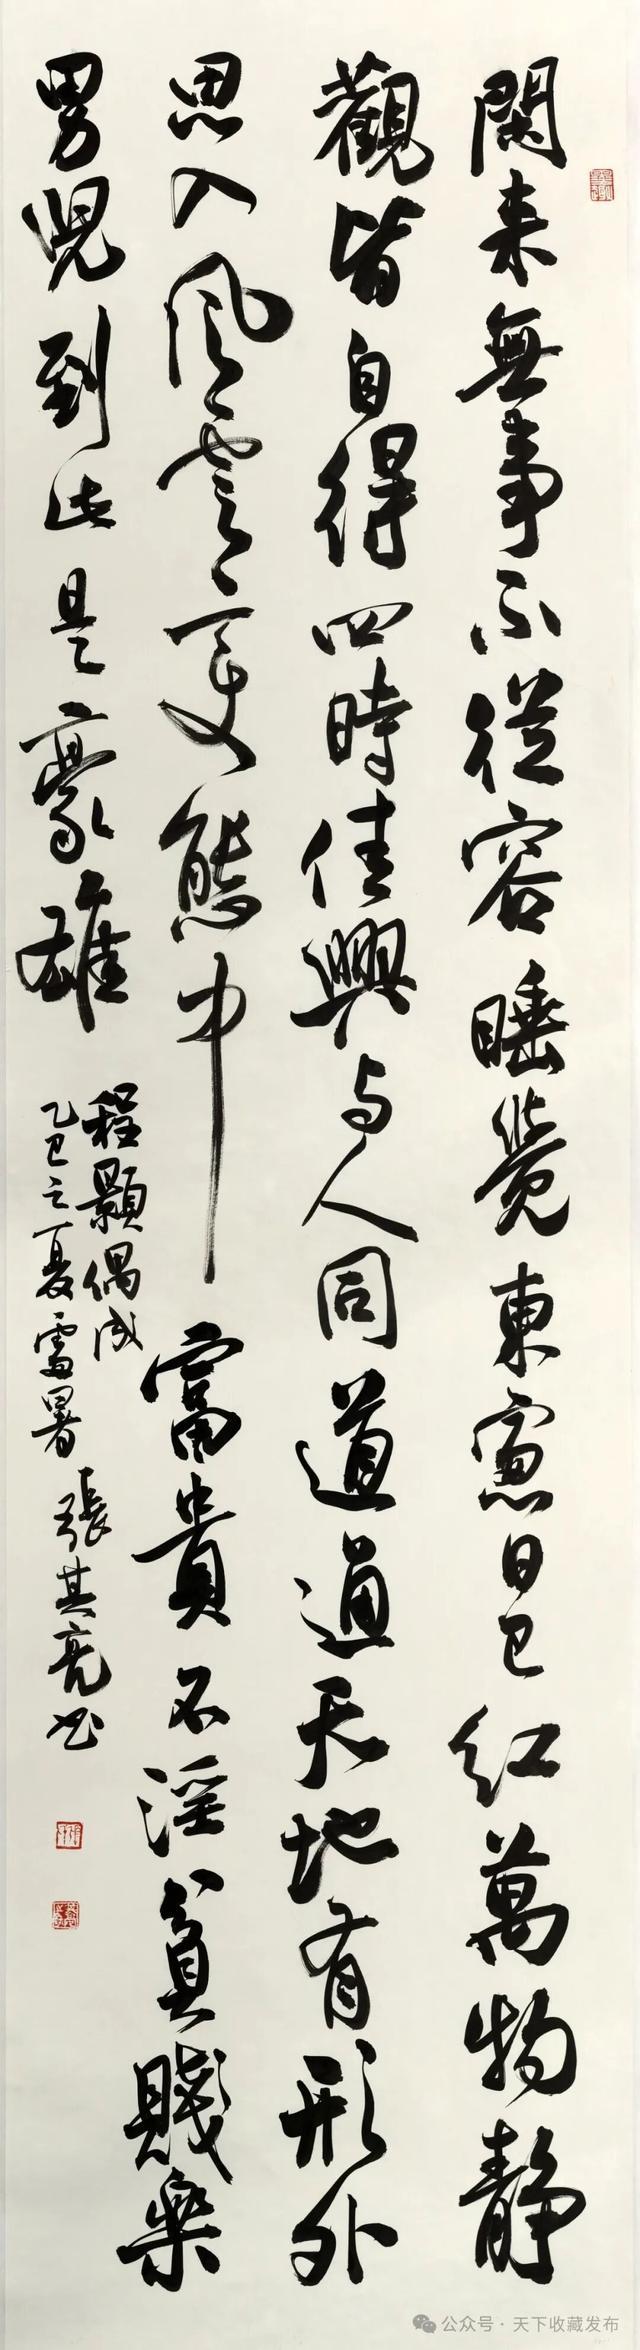 閑来無事不從容睡覺東窓日已紅萬物静
觀皆自得四時佳興与人同道通天地有形外
思入風雲變態中富貴不淫貧賤樂
男児到此是豪雄
程顥偶成
乙巳之夏雷暑張其亮书
公众号·天下收藏发布